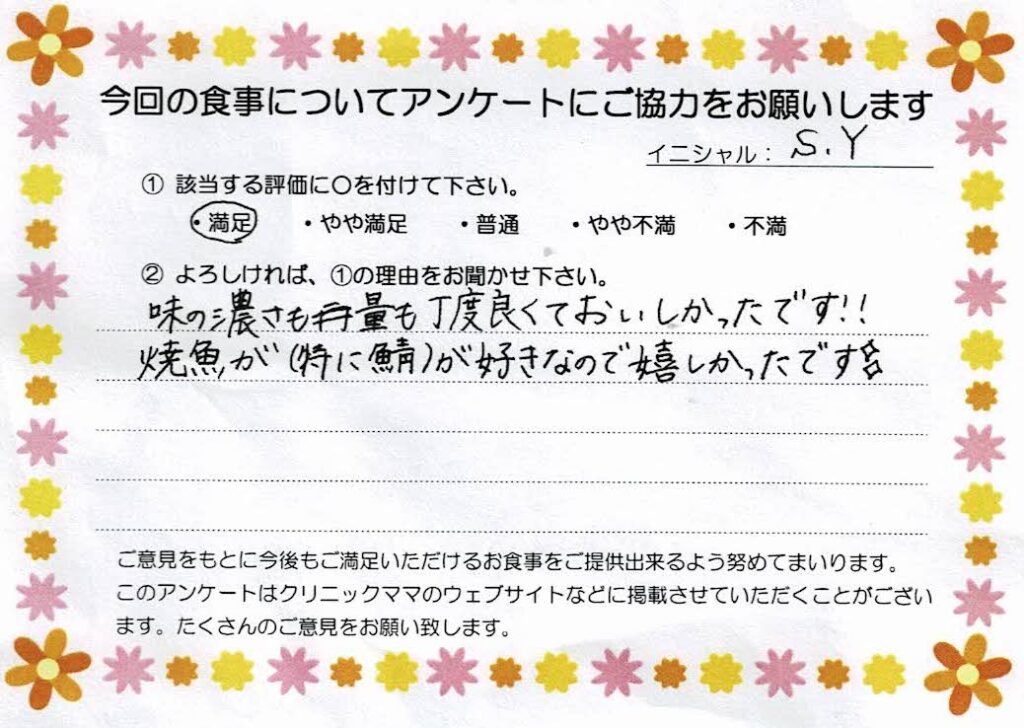 今回の食事についてアンケートにご協力をお願いします
イニシャル： S.Y
① 該当する評価に〇を付けて下さい。
・満足 ・やや満足 ・普通 ・やや不満 ・不満
② よろしければ、①の理由をお聞かせ下さい。
味の濃さも量も丁度良くておいしかったです!!
焼魚が(特に鯖)が好きなので嬉しかったです☆
ご意見をもとに今後もご満足いただけるお食事をご提供出来るよう努めてまいります。
このアンケートはクリニックママのウェブサイトなどに掲載させていただくことがござい
ます。たくさんのご意見をお願い致します。